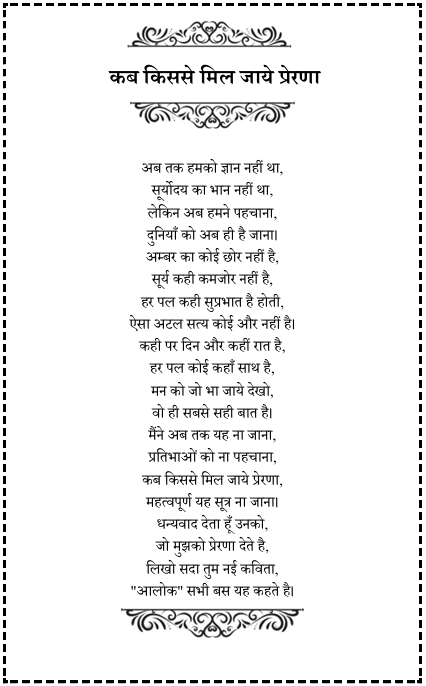 कब किससे मिल जाये प्रेरणा
अब तक हमको ज्ञान नहीं था,
सूर्योदय का भान नहीं था,
लेकिन अब हमने पहचाना,
दुनियाँ को अब ही है जाना।
अम्बर का कोई छोर नहीं है,
सूर्य कही कमजोर नहीं है,
हर पल कही सुप्रभात है होती,
ऐसा अटल सत्य कोई और नहीं है।
कही पर दिन और कहीं रात है,
हर पल कोई कहाँ साथ है,
मन को जो भा जाये देखो,
वो ही सबसे सही बात है।
मैंने अब तक यह ना जाना,
प्रतिभाओं को ना पहचाना,
कब किससे मिल जाये प्रेरणा,
महत्वपूर्ण यह सूत्र ना जाना।
धन्यवाद देता हूँ उनको,
जो मुझको प्रेरणा देते है,
लिखो सदा तुम नई कविता,
"आलोक" सभी बस यह कहते है।